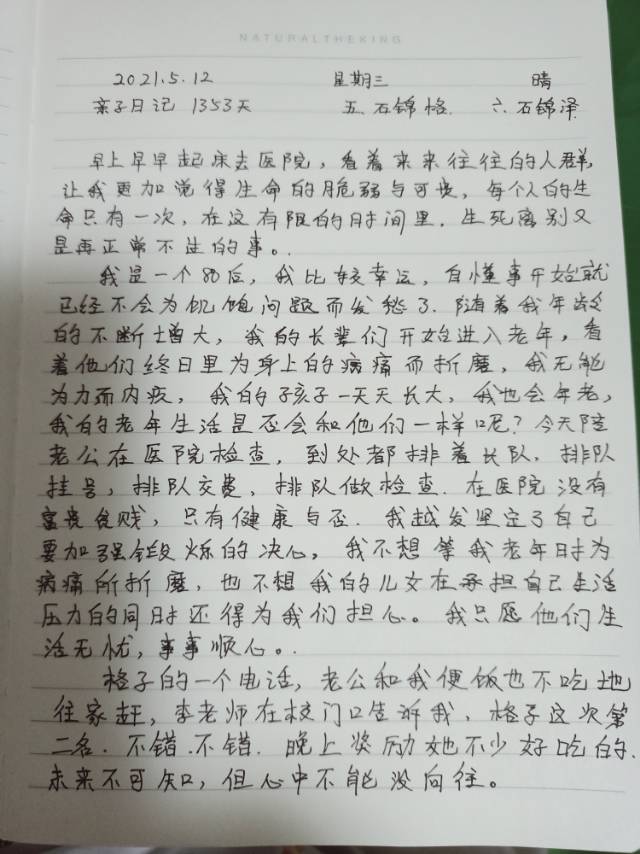 NATURALTHEKING
2021.5.12 星期三 晴
亲子日记 1353天 五.石锦格. 六.石锦泽
早上早早起床去医院，看着来来往往的人群，
让我更加觉得生命的脆弱与可贵，每个人的生
命只有一次，在这有限的时间里，生死离别又
是再正常不过的事。
我是一个80后，我比较幸运，自懂事开始就
已经不会为饥饱问题而发愁了.随着我年龄
的不断增大，我的长辈们开始进入老年，看
着他们终日里为身上的病痛而折磨，我无能
为力而内疚，我的孩子一天天长大，我也会年老，
我的老年生活是否会和他们一样呢？今天陪
老公在医院检查，到处都排着长队，排队
挂号，排队交费，排队做检查.在医院没有
富贵贫贱，只有健康与否.我越发坚定了自己
要加强锻炼的决心，我不想等我老年时为
病痛所折磨，也不想我的儿女在承担自己生活
压力的同时还得为我们担心。我只愿他们生
活无忧，事事顺心。
格子的一个电话，老公和我便饭也不吃地
往家赶，李老师在校门口告诉我，格子这次第
二名.不错.不错.晚上奖励她不少好吃的.
未来不可知，但心中不能没向往。